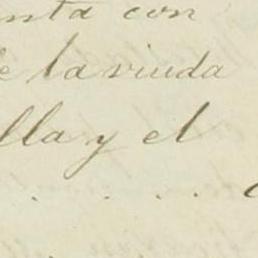 con
la viuda
lla y el